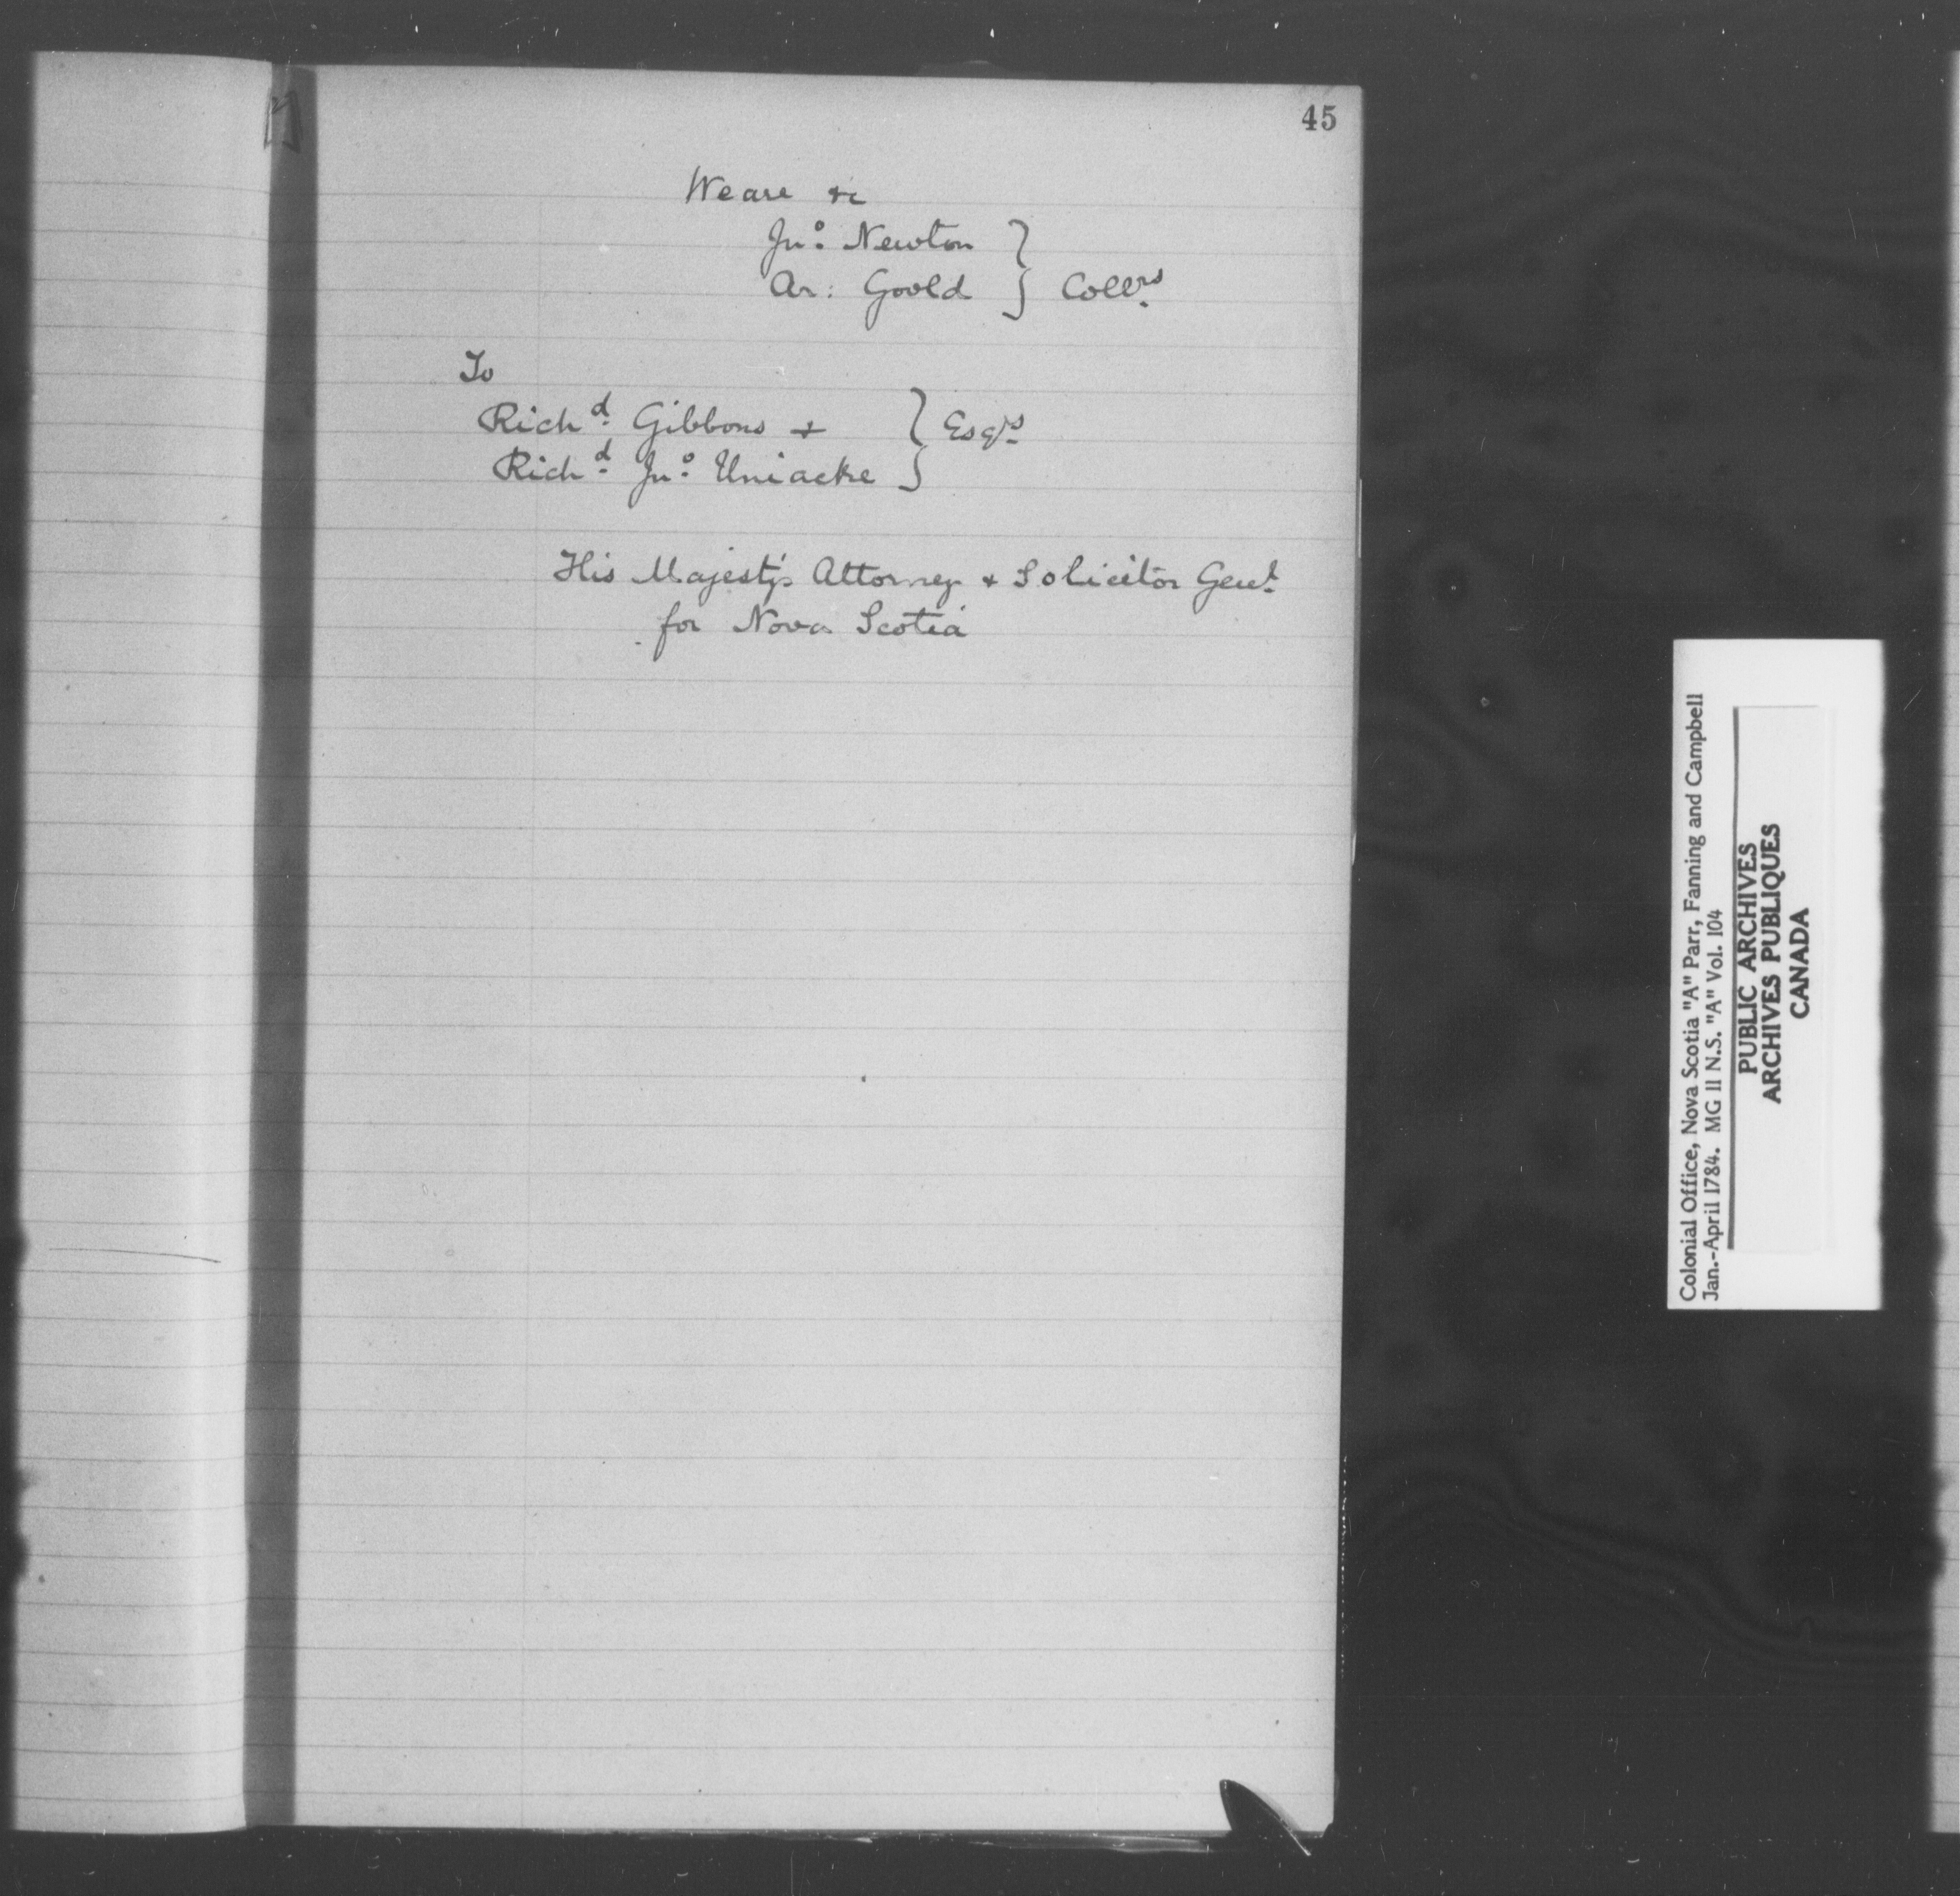 45
We are &c
Jnº Newton }
Ar: Goold } Collrs
To
Richd Gibbons & } Esqrs
Richd Jnº Uniacke }
His Majesty's Attorney & Solicitor Genl
for Nova Scotia
Colonial Office, Nova Scotia "A" Parr, Fanning and Campbell
Jan.-April 1784. MG 11 N.S. "A" Vol. 104
PUBLIC ARCHIVES
ARCHIVES PUBLIQUES
CANADA